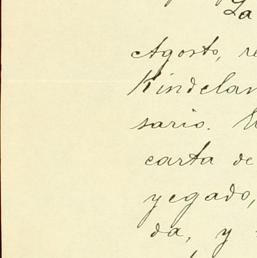 La
Agosto, re
Kindelan
sario.
carta de
yegado,
da, y